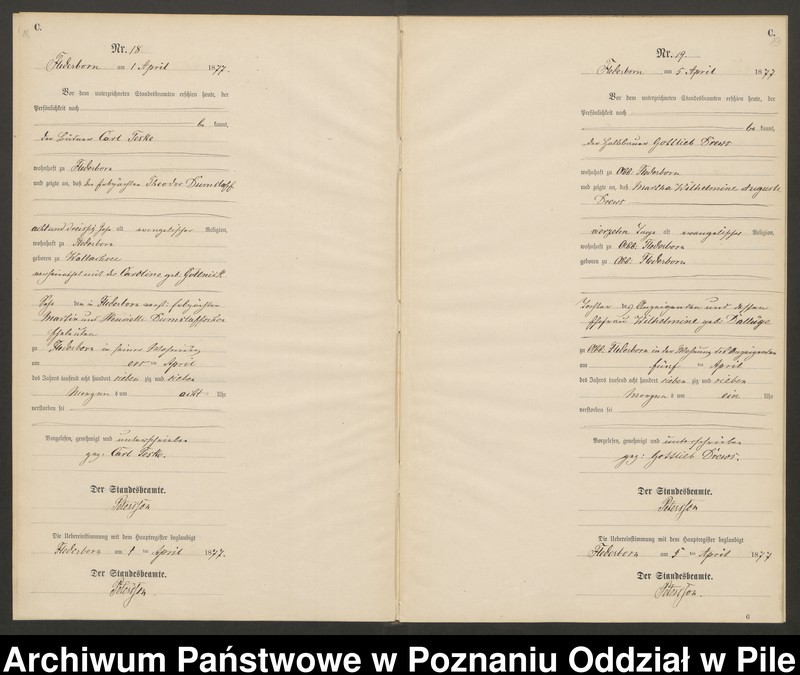 C.
Nr. 18.
Flederborn am 1 April 1877.
Vor dem unterzeichneten Standesbeamten erschien heute, der
Persönlichkeit nach
be kannt,
der Büdner Carl Teske
wohnhaft zu Flederborn
und zeigte an, daß der Theodor Dumslaff
acht und dreißig Jahr alt evangelischer Religion,
wohnhaft zu Flederborn
geboren zu Wallachsee
verheirathet mit der Caroline geb. Gollnick
Sohn der in Flederborn
Martin und Henriette
Eheleuten
zu Flederborn in seiner Wohnung
am ersten April
des Jahres tausend acht hundert sieben zig und sieben
Morgens um acht Uhr
verstorben sei
Vorgelesen, genehmigt und unterschrieben
gez. Carl Teske.
Der Standesbeamte.
Die Uebereinstimmung mit dem Hauptregister beglaubigt
Flederborn am 1 ten April 1877.
Der Standesbeamte.
C.
Nr. 19.
Flederborn am 5 April 1877
Vor dem unterzeichneten Standesbeamten erschien heute, der
Persönlichkeit nach
be kannt,
der Halbbauer Gottlieb Drews
wohnhaft zu Abb. Flederborn
und zeigte an, daß Martha Wilhelmine Auguste
Drews
vierzehn Tage alt evangelischer Religion,
wohnhaft zu Abb. Flederborn
geboren zu Abb. Flederborn
Tochter des Anzeigenden und dessen
Ehefrau Wilhelmine geb.
zu Abb. Flederborn in der Wohnung des Anzeigenden
am fünf ten April
des Jahres tausend acht hundert sieben zig und sieben
Morgens um ein Uhr
verstorben sei
Vorgelesen, genehmigt und unterschrieben
gez. Gottlieb Drews.
Der Standesbeamte.
Die Uebereinstimmung mit dem Hauptregister beglaubigt
Flederborn am 5 ten April 1877
Der Standesbeamte.
6
Archiwum Państwowe w Poznaniu Oddział w Pile